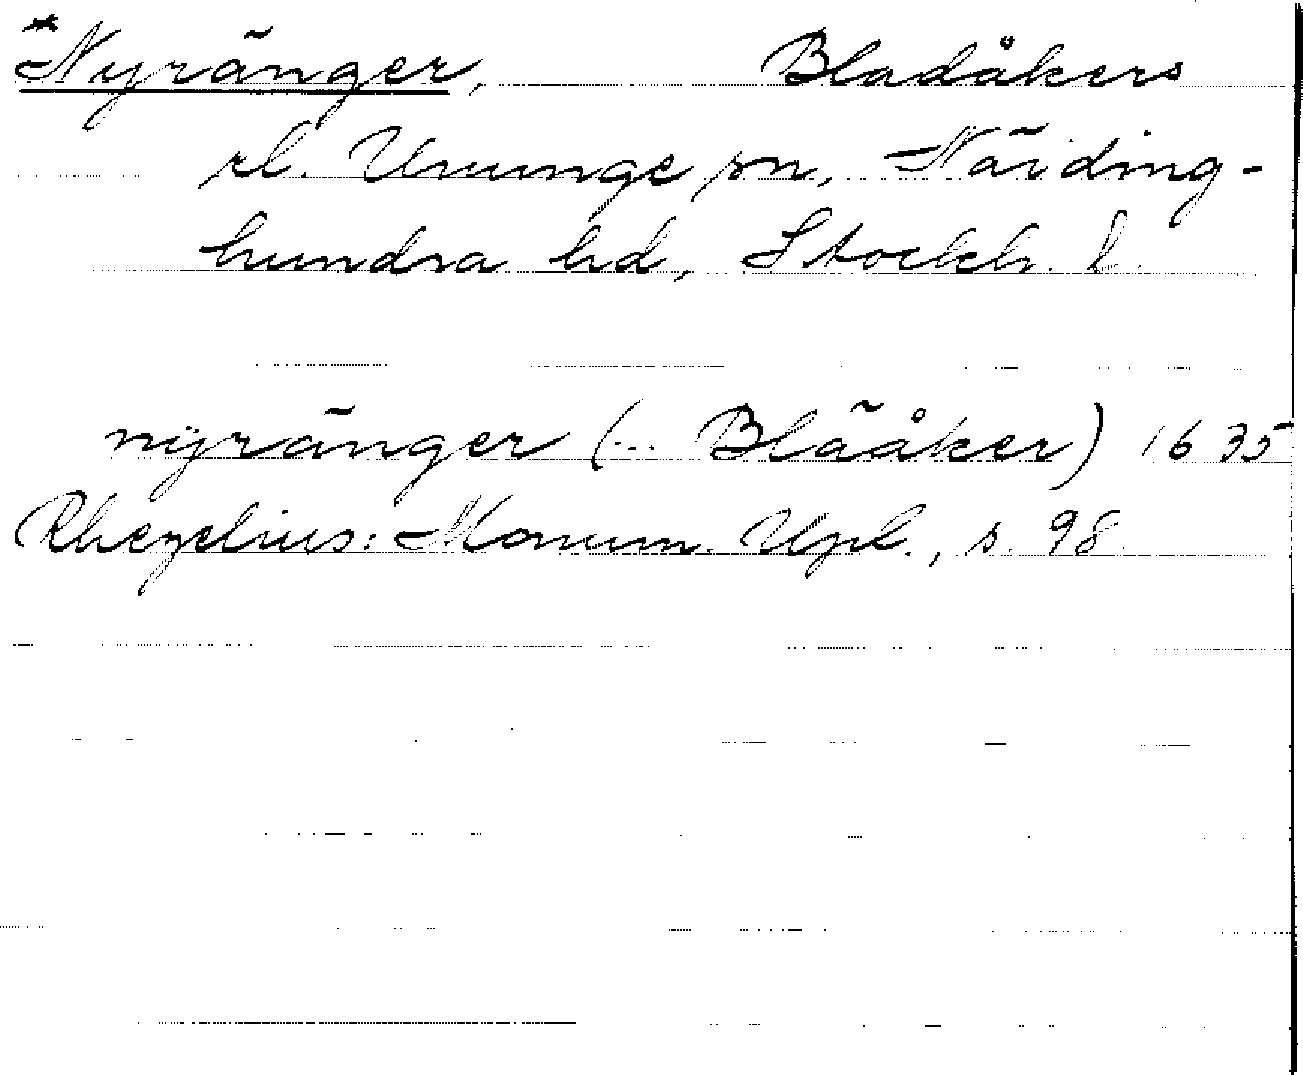 *Nyränger, Bladåkers
rl. Ununge sn, Närding-
hundra hd, Stockh. l.
nyränger (... Blãåker) 1635
Rhezelius: Monum. Upl., s. 98